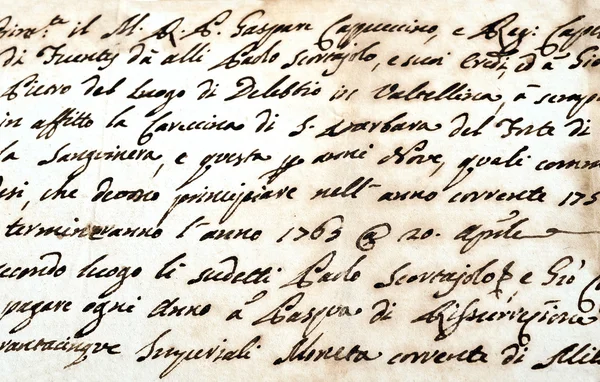 il M. R. P. Gaspare Capuccino, e Reg:
di Fuentes dà alli Paolo Scortajolo, e suoi Eredi, ed à Gio
Piero del luogo di Delebbio in Valtellina, à
in affitto la Caneccina di S. Barbara del Forte di
la Sanguinera, e questa p anni Nove, quali
che devono principiare nell'anno corrente 175
termineranno l'anno 1763 @ 20. Aprile
secondo luogo li sudetti Paolo Scortajolo, e Gio
pagare ogni Anno à Pasqua di Rissurrezione
rantacinque Imperiali Moneta corrente di Mila